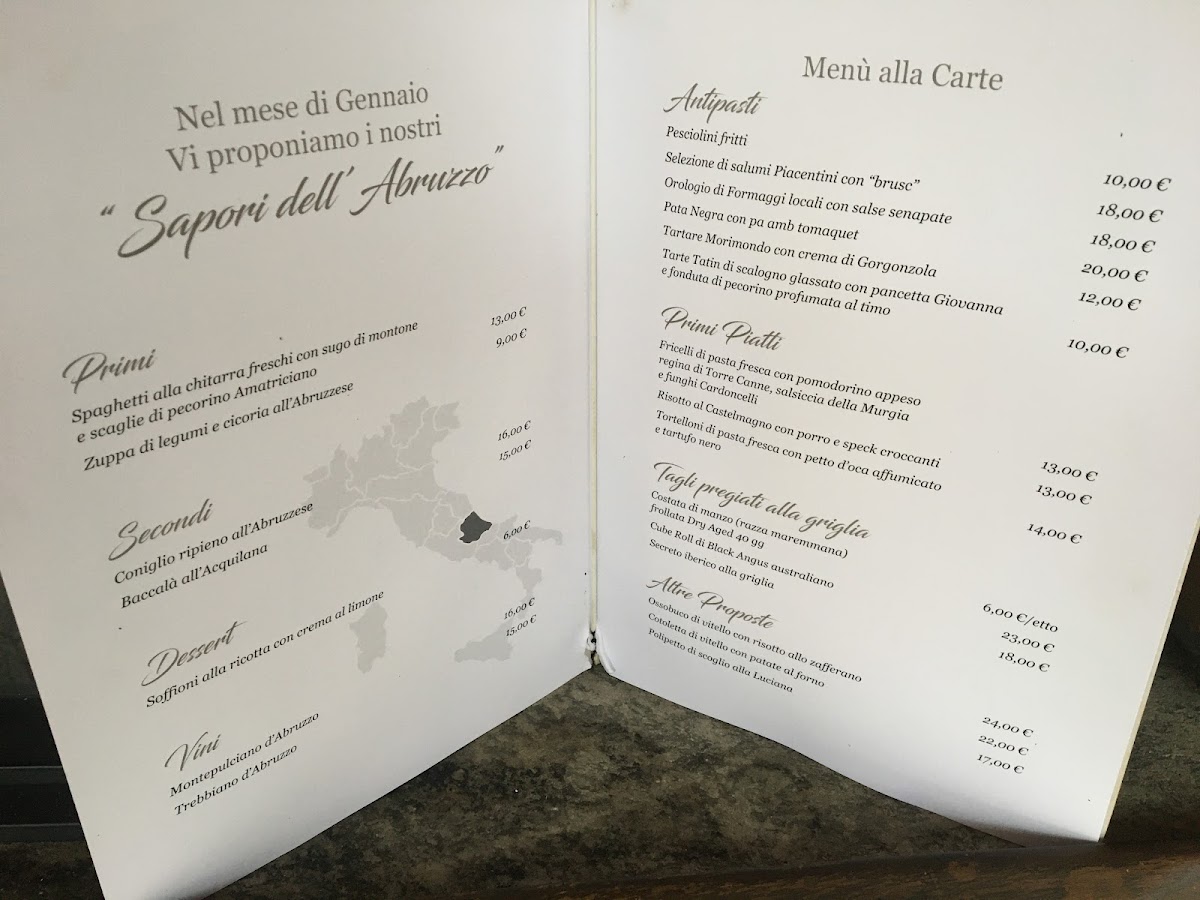 Nel mese di Gennaio
Vi proponiamo i nostri
“ Sapori dell’ Abruzzo”
Primi
Spaghetti alla chitarra freschi con sugo di montone 13,00 €
e scaglie di pecorino Amatriciano
Zuppa di legumi e cicoria all’Abruzzese 9,00 €
Secondi
Coniglio ripieno all’Abruzzese 16,00 €
Baccalà all’Acquilana 15,00 €
Dessert
Soffioni alla ricotta con crema al limone 6,00 €
Vini
Montepulciano d’Abruzzo 16,00 €
Trebbiano d’Abruzzo 15,00 €
Menù alla Carte
Antipasti
Pesciolini fritti 10,00 €
Selezione di salumi Piacentini con “brusc” 18,00 €
Orologio di Formaggi locali con salse senapate 18,00 €
Pata Negra con pa amb tomaquet 20,00 €
Tartare Morimondo con crema di Gorgonzola 12,00 €
Tarte Tatin di scalogno glassato con pancetta Giovanna
e fonduta di pecorino profumata al timo 10,00 €
Primi Piatti
Fricelli di pasta fresca con pomodorino appeso
regina di Torre Canne, salsiccia della Murgia
e funghi Cardoncelli 13,00 €
Risotto al Castelmagno con porro e speck croccanti 13,00 €
Tortelloni di pasta fresca con petto d’oca affumicato
e tartufo nero 14,00 €
Tagli pregiati alla griglia
Costata di manzo (razza maremmana)
frollata Dry Aged 40 gg 6,00 €/etto
Cube Roll di Black Angus australiano 23,00 €
Secreto iberico alla griglia 18,00 €
Altre Proposte
Ossobuco di vitello con risotto allo zafferano 24,00 €
Cotoletta di vitello con patate al forno 22,00 €
Polipetto di scoglio alla Luciana 17,00 €